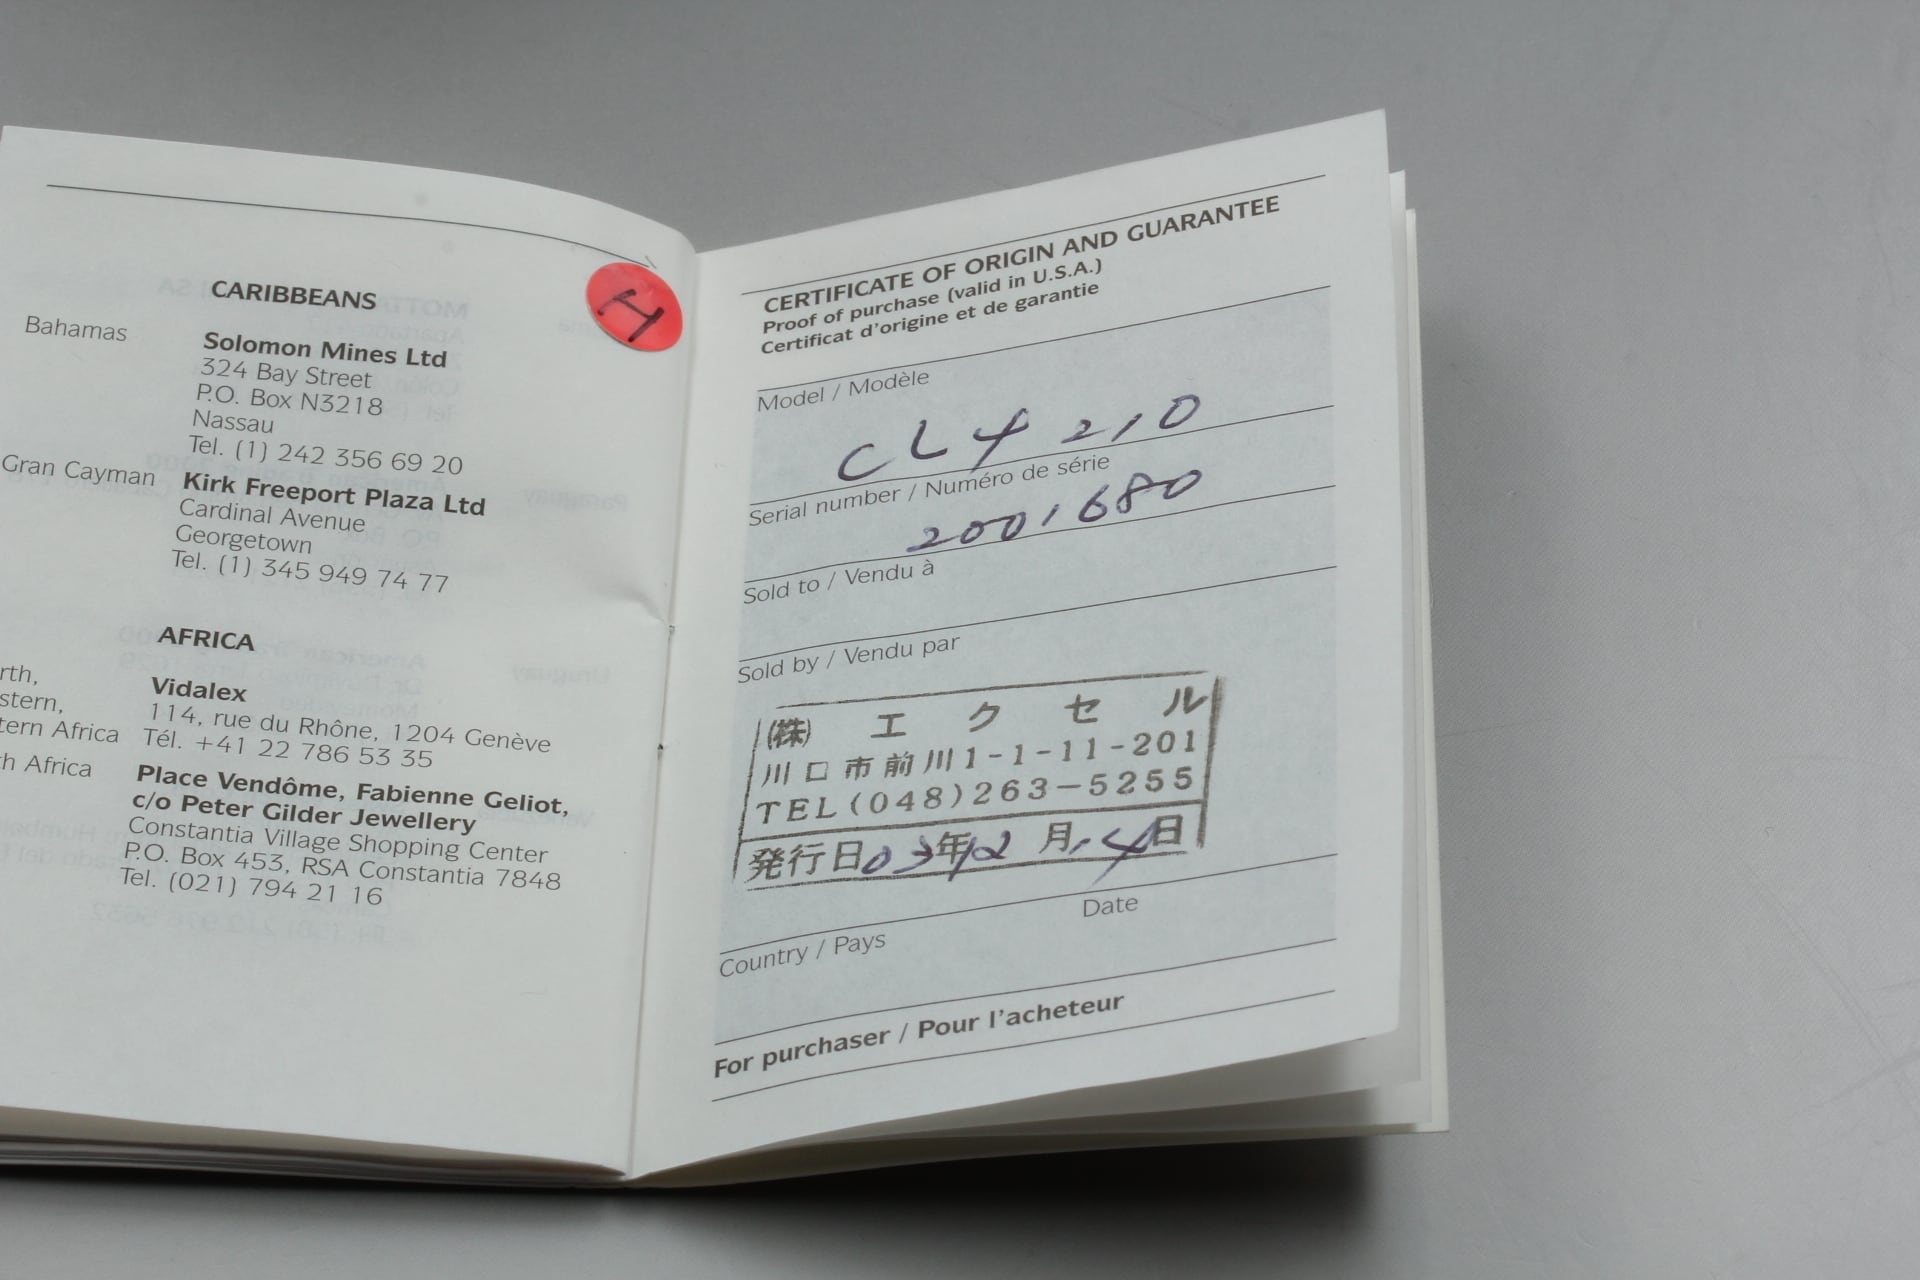 CARIBBEANS
Bahamas
Solomon Mines Ltd
324 Bay Street
P.O. Box N3218
Nassau
Tel. (1) 242 356 69 20
Gran Cayman
Kirk Freeport Plaza Ltd
Cardinal Avenue
Georgetown
Tel. (1) 345 949 74 77
AFRICA
rth,
stern,
tern Africa
Vidalex
114, rue du Rhône, 1204 Genève
Tél. +41 22 786 53 35
h Africa
Place Vendôme, Fabienne Geliot,
c/o Peter Gilder Jewellery
Constantia Village Shopping Center
P.O. Box 453, RSA Constantia 7848
Tel. (021) 794 21 16
H
CERTIFICATE OF ORIGIN AND GUARANTEE
Proof of purchase (valid in U.S.A.)
Certificat d'origine et de garantie
Model / Modèle
CL4 210
Serial number / Numéro de série
2001680
Sold to / Vendu à
Sold by / Vendu par
(株) エクセル
川口市前川1-1-11-201
TEL(048)263-5255
発行日03年12月14日
Date
Country / Pays
For purchaser / Pour l'acheteur